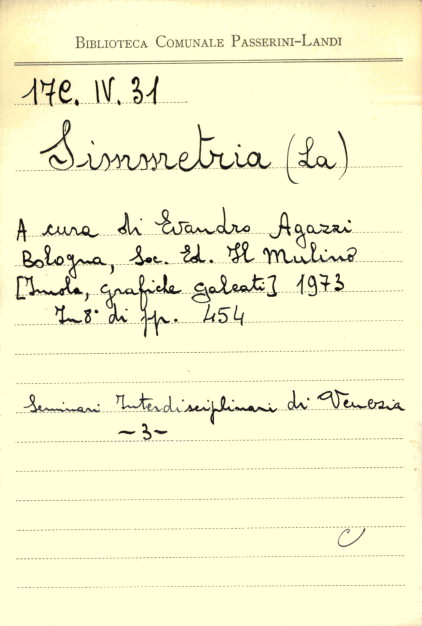 BIBLIOTECA COMUNALE PASSERINI-LANDI
17C. IV. 31
Simmetria (La)
A cura di Evandro Agazzi
Bologna, Soc. Ed. Il Mulino
[Imola, Grafiche Galeati] 1973
In 8° di pp. 454
Seminari Interdisciplinari di Venezia
-3-
C